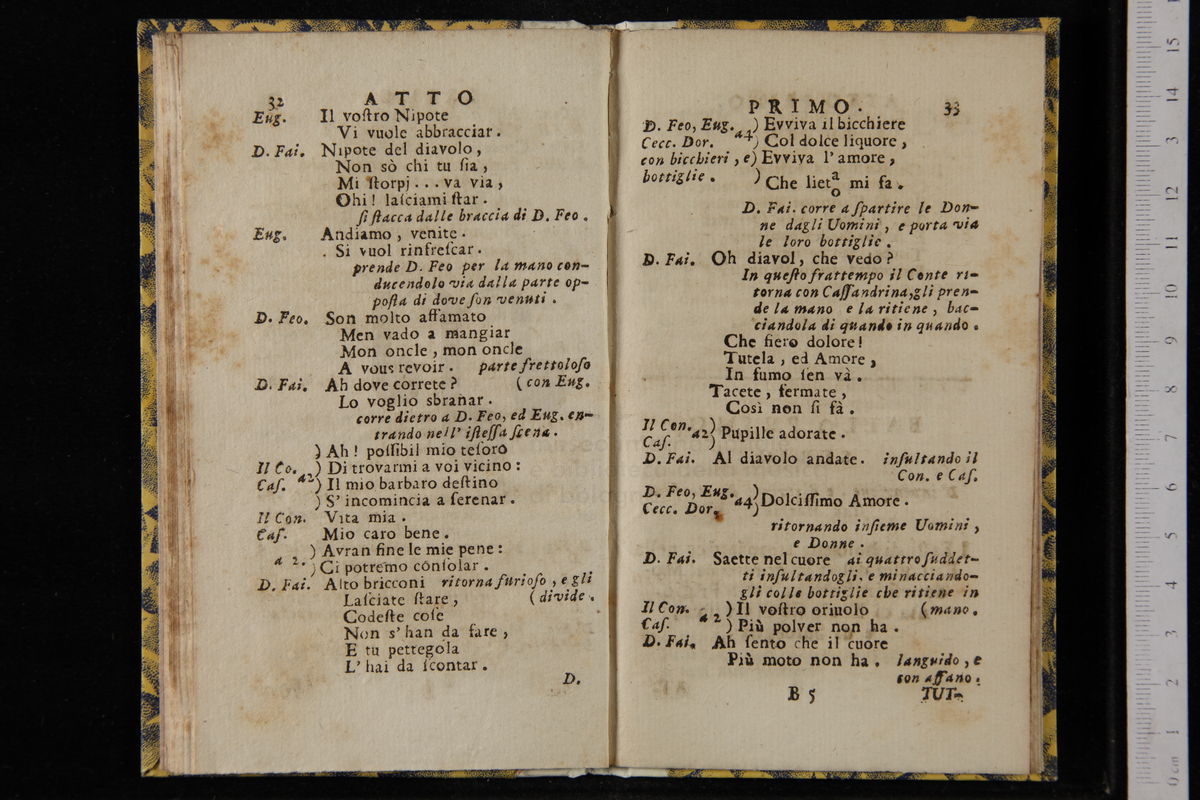 32 ATTO
Eug. Il voſtro Nipote
Vi vuole abbracciar.
D. Fai. Nipote del diavolo,
Non sò chi tu ſia,
Mi ſtorpj... va via,
Ohi! laſciami ſtar.
ſi ſtacca dalle braccia di D. Feo.
Eug. Andiamo, venite.
. Si vuol rinfreſcar.
prende D. Feo per la mano con-
ducendolo via dalla parte op-
poſta di dove ſon venuti.
D. Feo. Son molto affamato
Men vado a mangiar
Mon oncle, mon oncle
A vous revoir. parte frettoloſo
D. Fai. Ah dove correte? (con Eug.
Lo voglio sbranar.
corre dietro a D. Feo, ed Eug. en-
trando nell' iſteſſa ſcena.
) Ah! poſſibil mio teſoro
Il Co. a2 ) Di trovarmi a voi vicino:
Caſ. ) Il mio barbaro deſtino
) S' incomincia a ſerenar.
Il Con. Vita mia.
Caſ. Mio caro bene.
a 2. ) Avran fine le mie pene:
) Ci potremo conſolar.
D. Fai. Alto bricconi ritorna furioſo, e gli
Laſciate ſtare, (divide.
Codeſte coſe
Non s' han da fare,
E tu pettegola
L' hai da ſcontar.
D.
PRIMO. 33
D. Feo, Eug. a4 ) Evviva il bicchiere
Cecc. Dor. ) Col dolce liquore,
con bicchieri, e) Evviva l' amore,
bottiglie. ) Che liet a/o mi fa.
D. Fai. corre a ſpartire le Don-
ne dagli Uomini, e porta via
le loro bottiglie.
D. Fai. Oh diavol, che vedo?
In queſto frattempo il Conte ri-
torna con Caſſandrina, gli pren-
de la mano e la ritiene, bac-
ciandola di quando in quando.
Che fiero dolore!
Tutela, ed Amore,
In fumo ſen và.
Tacete, fermate,
Così non ſi fà.
Il Con. a2 ) Pupille adorate.
Caſ. )
D. Fai. Al diavolo andate. inſultando il
Con. e Caſ.
D. Feo, Eug. a4 ) Dolciſſimo Amore.
Cecc. Dor. )
ritornando inſieme Uomini,
e Donne.
D. Fai. Saette nel cuore ai quattro ſuddet-
ti inſultandogli, e minacciando-
gli colle bottiglie che ritiene in
Il Con. a 2 ) Il voſtro oriuolo (mano.
Caſ. ) Più polver non ha.
D. Fai. Ah ſento che il cuore
Più moto non ha. languido, e
con affano.
B 5 TUT-
0 cm 1 2 3 4 5 6 7 8 9 10 11 12 13 14 15